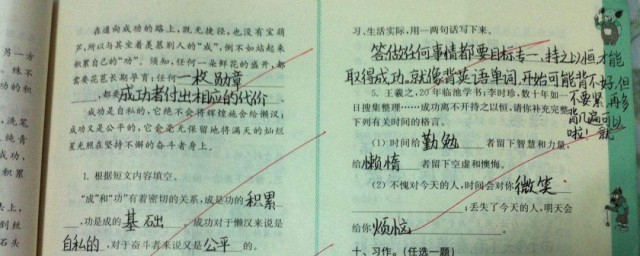 在通向成功的路上，既无捷径，也没有宝葫
芦，所以与其坐着羡慕别人的“成”，倒不如站起来
积累自己的“功”。须知，任何一朵鲜花的盛开，都
需要花蕊长期孕育；任何一枚勋章
，都要成功者付出相应的代价
成功是自私的，它绝不会将辉煌施舍给懒汉；
成功又是公平的，它会毫无保留地将满天的灿烂
星光照在坚持不懈的奋斗者身上。
1. 根据短文内容填空。
“成”和“功”有着密切的关系，成是功的积累
，功是成的基础，成功对于懒汉来说是
自私的，对于奋斗者来说又是公平的。
习、生活实际，用一两句话写下来。
答：做任何事情都要目标专一，持之以恒，才能
取得成功。就像背英语单词，开始可能背不好，但
不要紧，再多
背几遍可以
啦！
5. 王羲之，20年临池学书；李时珍，数十年如一
日搜集整理……成功离不开持之以恒，请你补充完整
下列有关时间的格言。
（1）时间给勤勉者留下智慧和力量，
给懒惰者留下空虚和懊悔。
（2）不愧对今天的人，时间会对你微笑
；丢失了今天的人，明天会
给你烦恼。
十、习作。（任选一题）
另一方
殊不
功的积
，洗笔
纯青
成功，
积累
头上，
到丝
石头